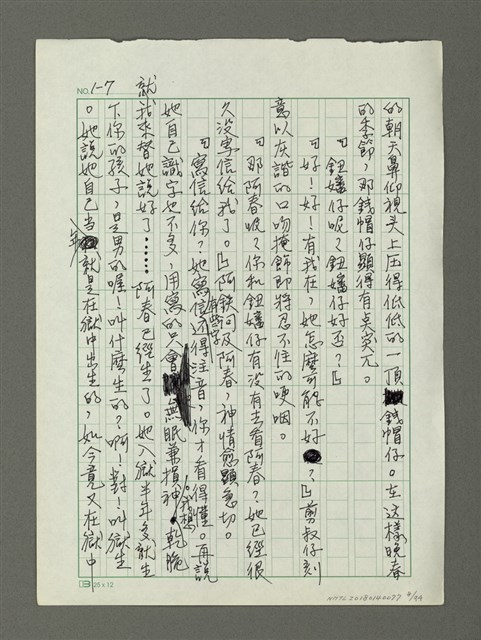 NO. 1-7
的朝天鼻仰視头上压得低低的一頂毡帽仔。在这樣晚春
的季節,那毡帽仔顯得有奌突兀。
『鈕嬸仔呢?鈕嬸仔好否?』
『好!好!有我在,她怎麼可能不好?』剪叔仔刻
意以灰諧的口吻掩飾即將忍不住的哽咽。
『那阿春呢?你和鈕嬸仔有沒有去看阿春?她已經很
久沒寫信給我了。』阿鉄问及阿春,神情愈顯急切。
『寫信給你?她寫信有些字还得注音,你才看得懂。再說
她自己識字也不多,用寫的只會無眠兼損神。我想,乾脆
就我來替她說好了……阿春已經生了。她入獄半年多就生
下你的孩子,是男的喔!叫什麼生的?啊!對!叫獄生
。她說她自己当年就是在獄中出生的,如今竟又在獄中
25 x 12
NMTL20180140077 9/99